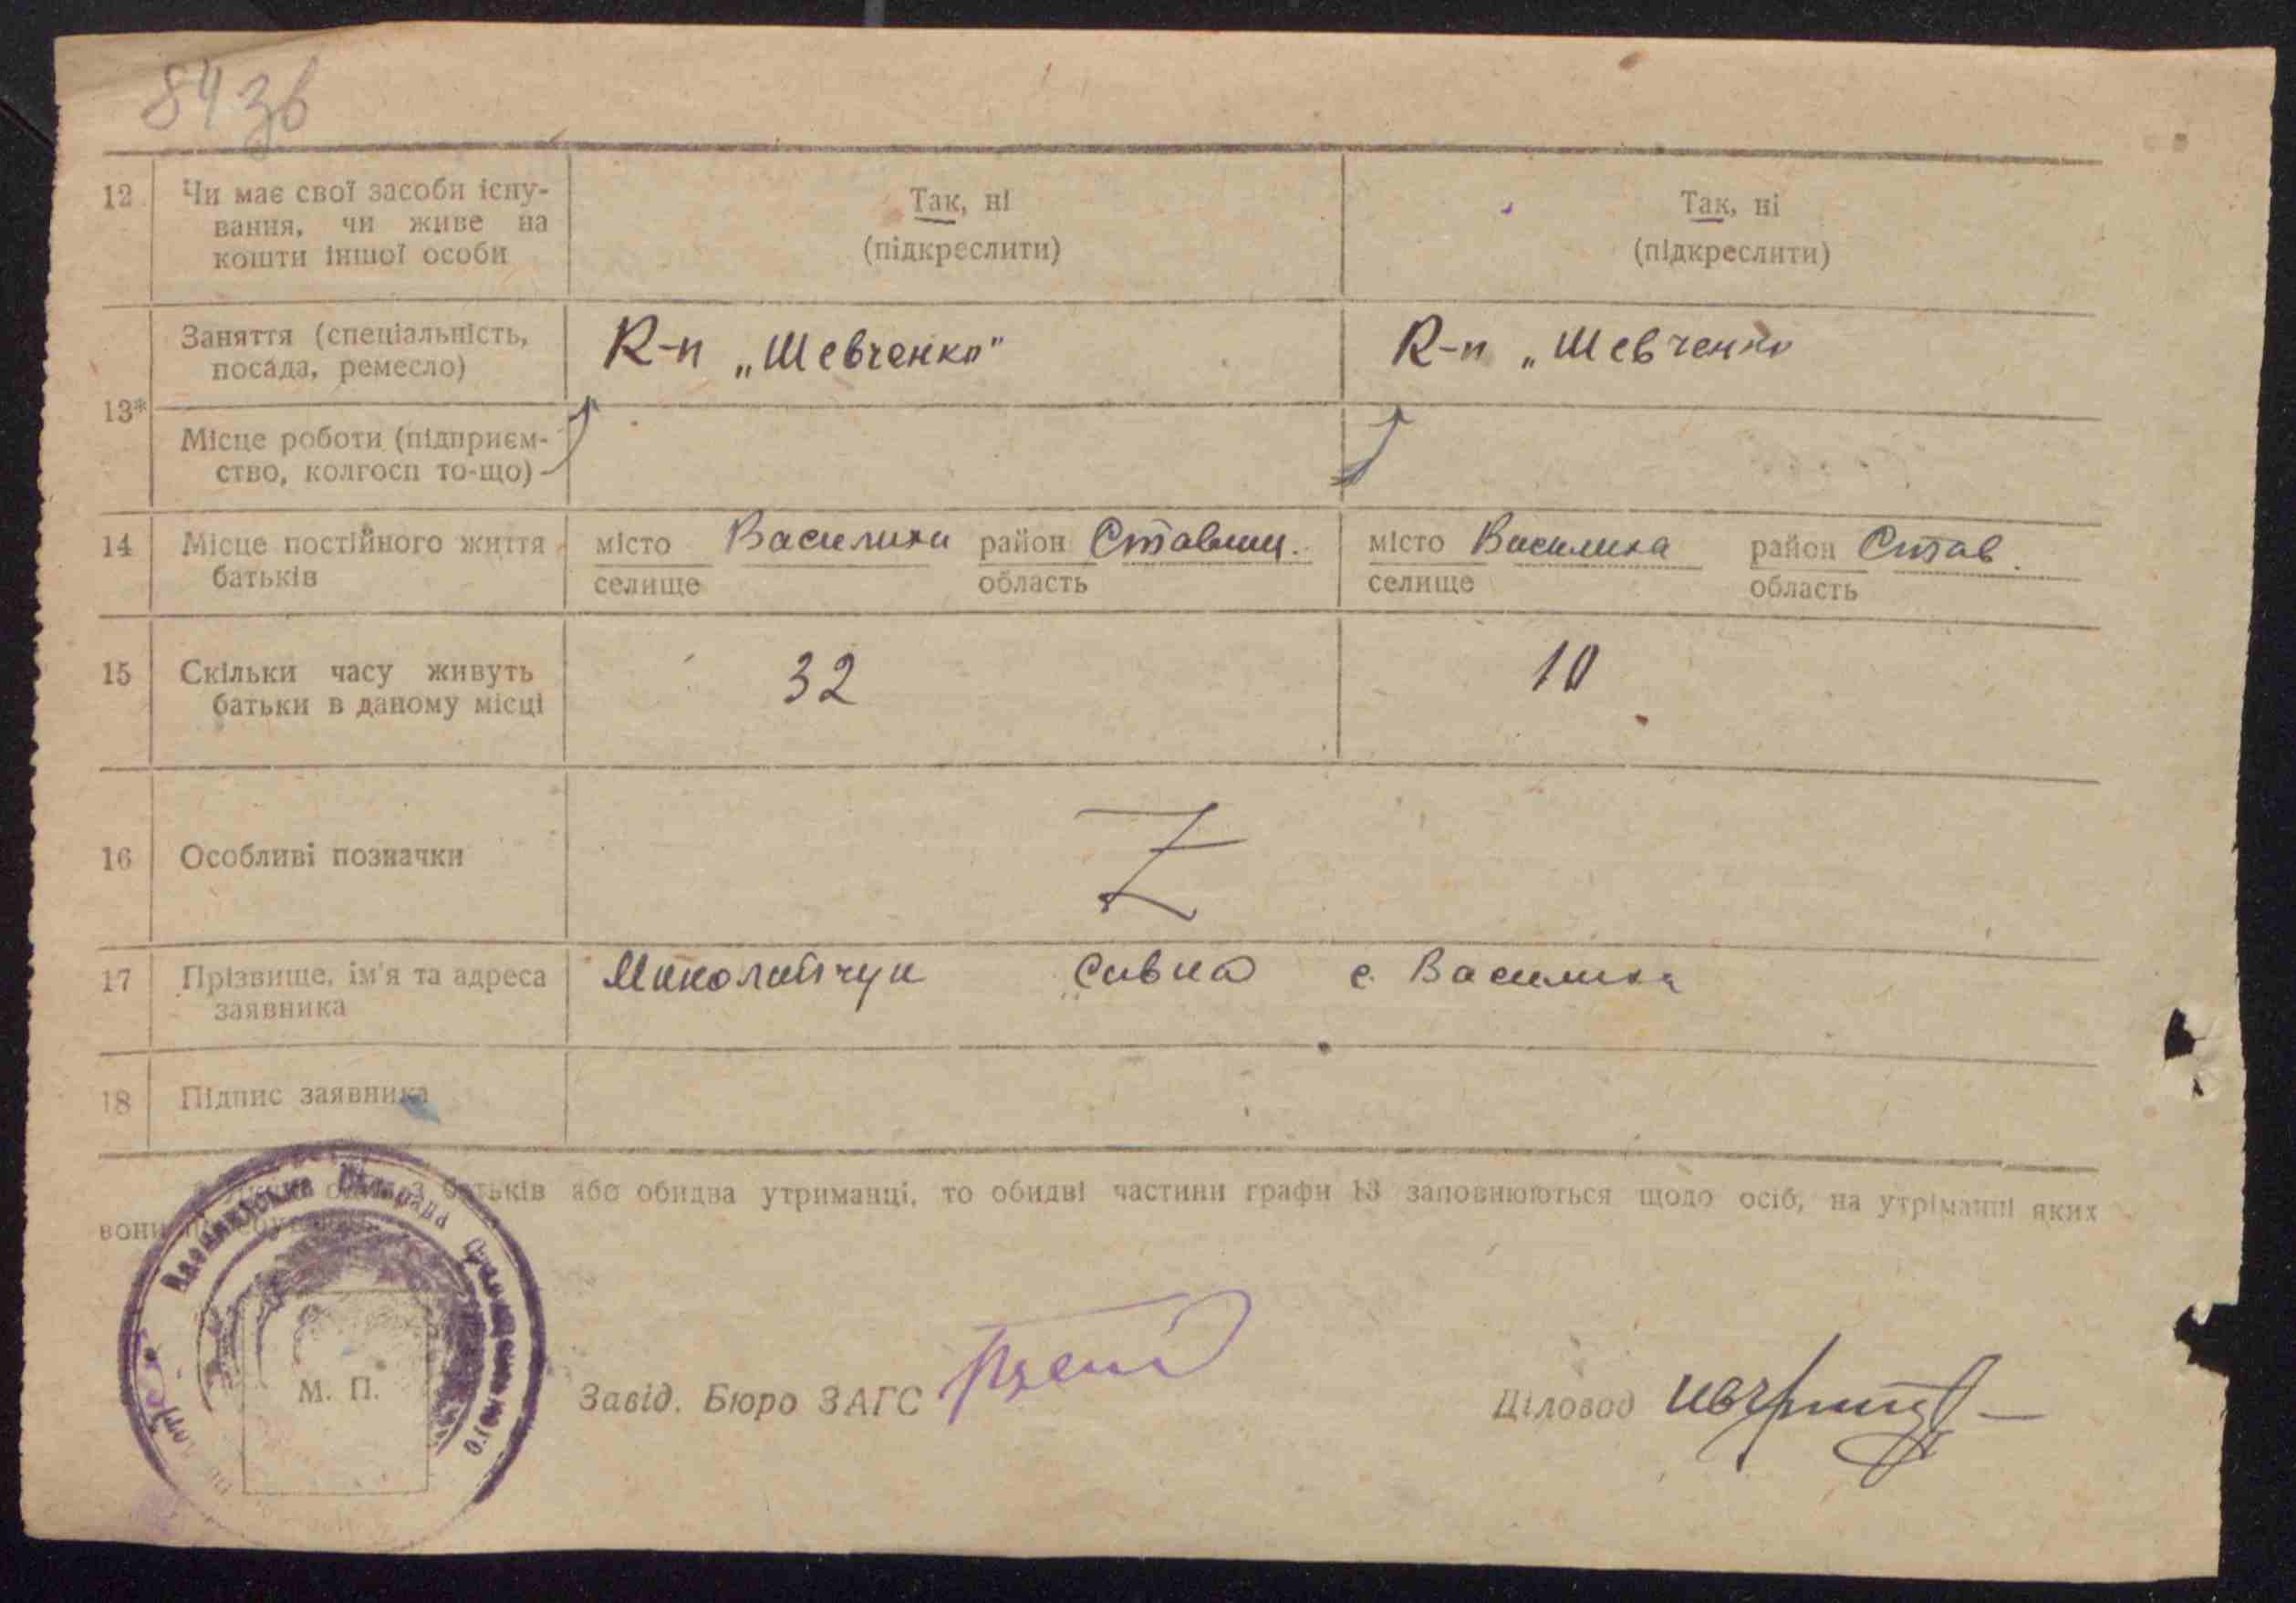 84 зв
12 Чи має свої засоби існу-
вання, чи живе на
кошти іншої особи
Так, ні
(підкреслити)
Так, ні
(підкреслити)
13*
Заняття (спеціальність,
посада, ремесло)
К-п „Шевченко"
К-п „Шевченко
Місце роботи (підприєм-
ство, колгосп то-що)
14 Місце постійного життя
батьків
місто Василиха район Ставищ.
селище область
місто Василиха район Став.
селище область
15 Скільки часу живуть
батьки в даному місці
32
10
16 Особливі позначки
Z
17 Прізвище, ім'я та адреса
заявника
Миколайчук с. Василиха
18 Підпис заявника
батьків або обидва утриманці, то обидві частини графи 13 заповнюються щодо осіб, на утріманні яких
вони
М. П.
Завід. Бюро ЗАГС
Діловод